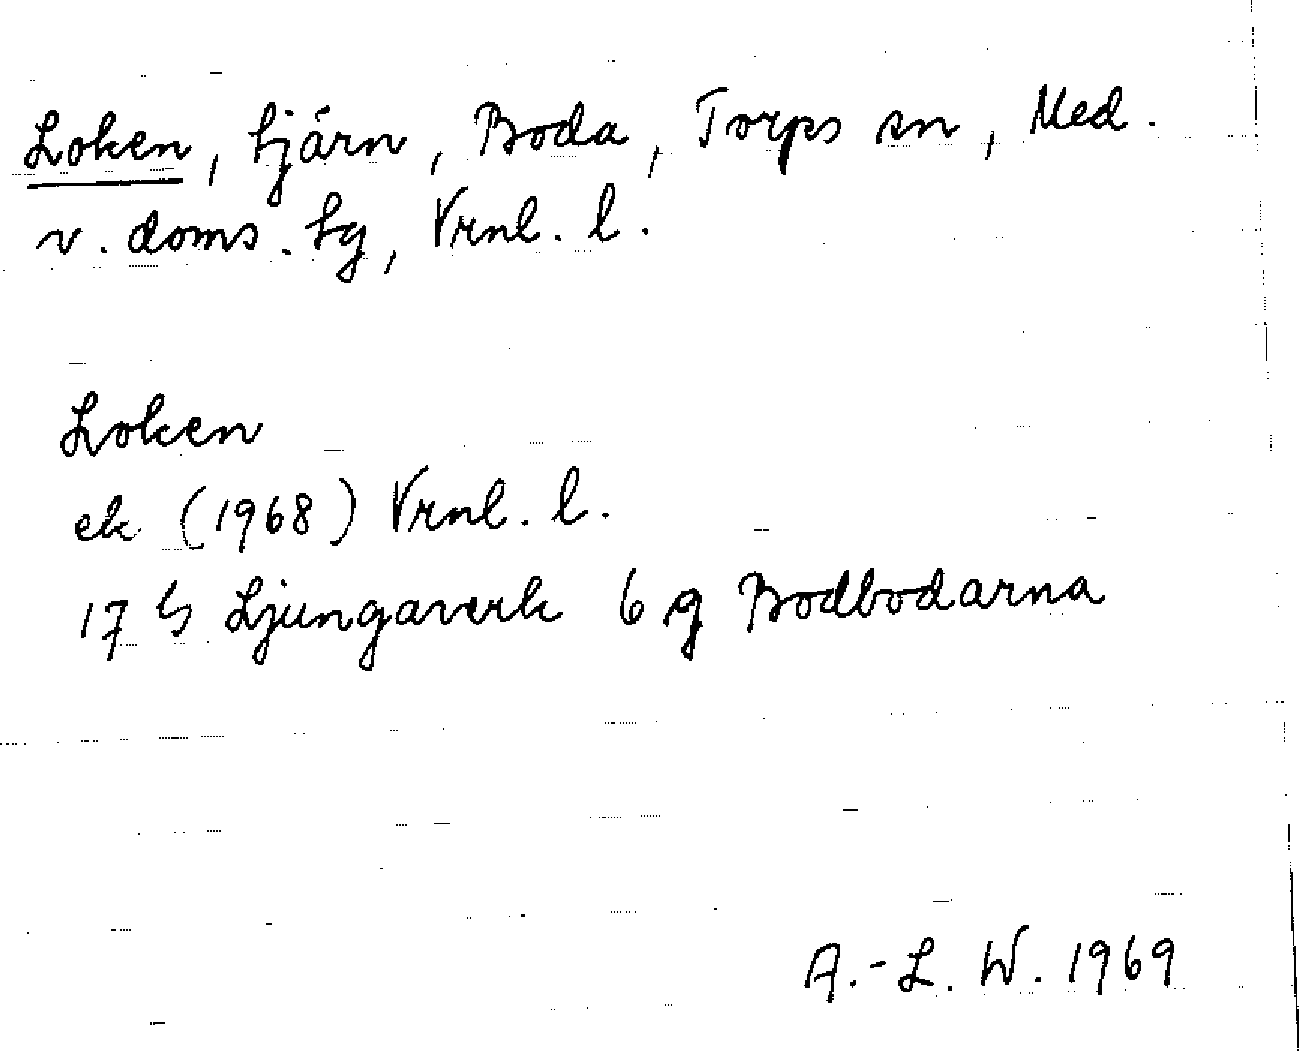 Loken, tjärn, Boda, Torps sn, Med.
v. doms. tg, Vrnl. l.
Loken
ek (1968) Vrnl. l.
17 G Ljungaverk 6 g Bodbodarna
A.-L. W. 1969